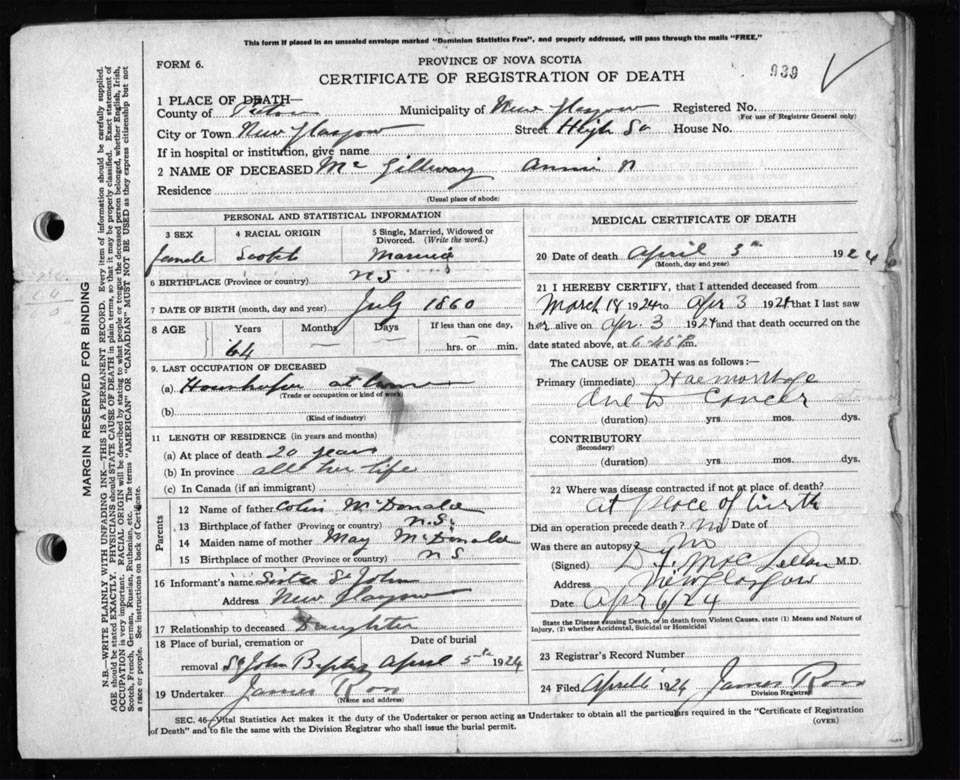 This form if placed in an unsealed envelope marked "Dominion Statistics Free", and properly addressed, will pass through the mails "FREE."
FORM 6.
PROVINCE OF NOVA SCOTIA
939
CERTIFICATE OF REGISTRATION OF DEATH
1 PLACE OF DEATH—
County of Pictou Municipality of New Glasgow Registered No.
(For use of Registrar General only)
City or Town New Glasgow Street High St House No.
If in hospital or institution, give name
2 NAME OF DECEASED Mc Gillvray Annie
Residence
(Usual place of abode)
PERSONAL AND STATISTICAL INFORMATION
3 SEX 4 RACIAL ORIGIN 5 Single, Married, Widowed or Divorced. (Write the word.)
female Scotch Married
6 BIRTHPLACE (Province or country) N S
7 DATE OF BIRTH (month, day and year) July 1860
8 AGE Years Months Days If less than one day,
64 hrs. or min.
9. LAST OCCUPATION OF DECEASED
(a) at home
(Trade or occupation or kind of work)
(b)
(Kind of industry)
11 LENGTH OF RESIDENCE (in years and months)
(a) At place of death 20 years
(b) In province all her life
(c) In Canada (if an immigrant)
Parents
12 Name of father Colin McDonald
13 Birthplace of father (Province or country) N.S.
14 Maiden name of mother May McDonald
15 Birthplace of mother (Province or country) N S
16 Informant's name Sister St John
Address New Glasgow
17 Relationship to deceased Daughter
18 Place of burial, cremation or Date of burial
removal St John April 5th 1924
19 Undertaker James Ross
(Name and address)
MEDICAL CERTIFICATE OF DEATH
20 Date of death April 3rd 1924
(Month, day and year)
21 I HEREBY CERTIFY, that I attended deceased from
March 18 1924 to Apr 3 1924 that I last saw
her alive on Apr. 3 1924 and that death occurred on the
date stated above, at 6-45 P.m.
The CAUSE OF DEATH was as follows:—
Primary (immediate) Haemorrhage
due to Cancer
(duration) yrs. mos. dys.
CONTRIBUTORY
(Secondary)
(duration) yrs. mos. dys.
22 Where was disease contracted if not at place of death?
At place of birth
Did an operation precede death? no Date of
Was there an autopsy? No
(Signed) MacLellan M.D.
Address New Glasgow
Date Apr 6/24
State the Disease causing Death, or in death from Violent Causes, state (1) Means and Nature of
Injury, (2) whether Accidental, Suicidal or Homicidal
23 Registrar's Record Number
24 Filed April 6 1924 James Ross
Division Registrar
SEC. 46—Vital Statistics Act makes it the duty of the Undertaker or person acting as Undertaker to obtain all the particulars required in the "Certificate of Registration
of Death" and to file the same with the Division Registrar who shall issue the burial permit.
(OVER)
MARGIN RESERVED FOR BINDING
N.B.—WRITE PLAINLY WITH UNFADING INK—THIS IS A PERMANENT RECORD. Every item of information should be carefully supplied.
AGE should be stated EXACTLY. PHYSICIANS should STATE CAUSE OF DEATH in plain terms, so that it may be properly classified. Exact statement of
OCCUPATION is very important. RACIAL ORIGIN will be described by stating to what people or tongue the deceased person belonged, whether English, Irish,
Scotch, French, German, Russian, Ruthenian, etc. The terms "AMERICAN" OR "CANADIAN" MUST NOT BE USED as they express citizenship but not
a race or people. See instructions on back of Certificate.